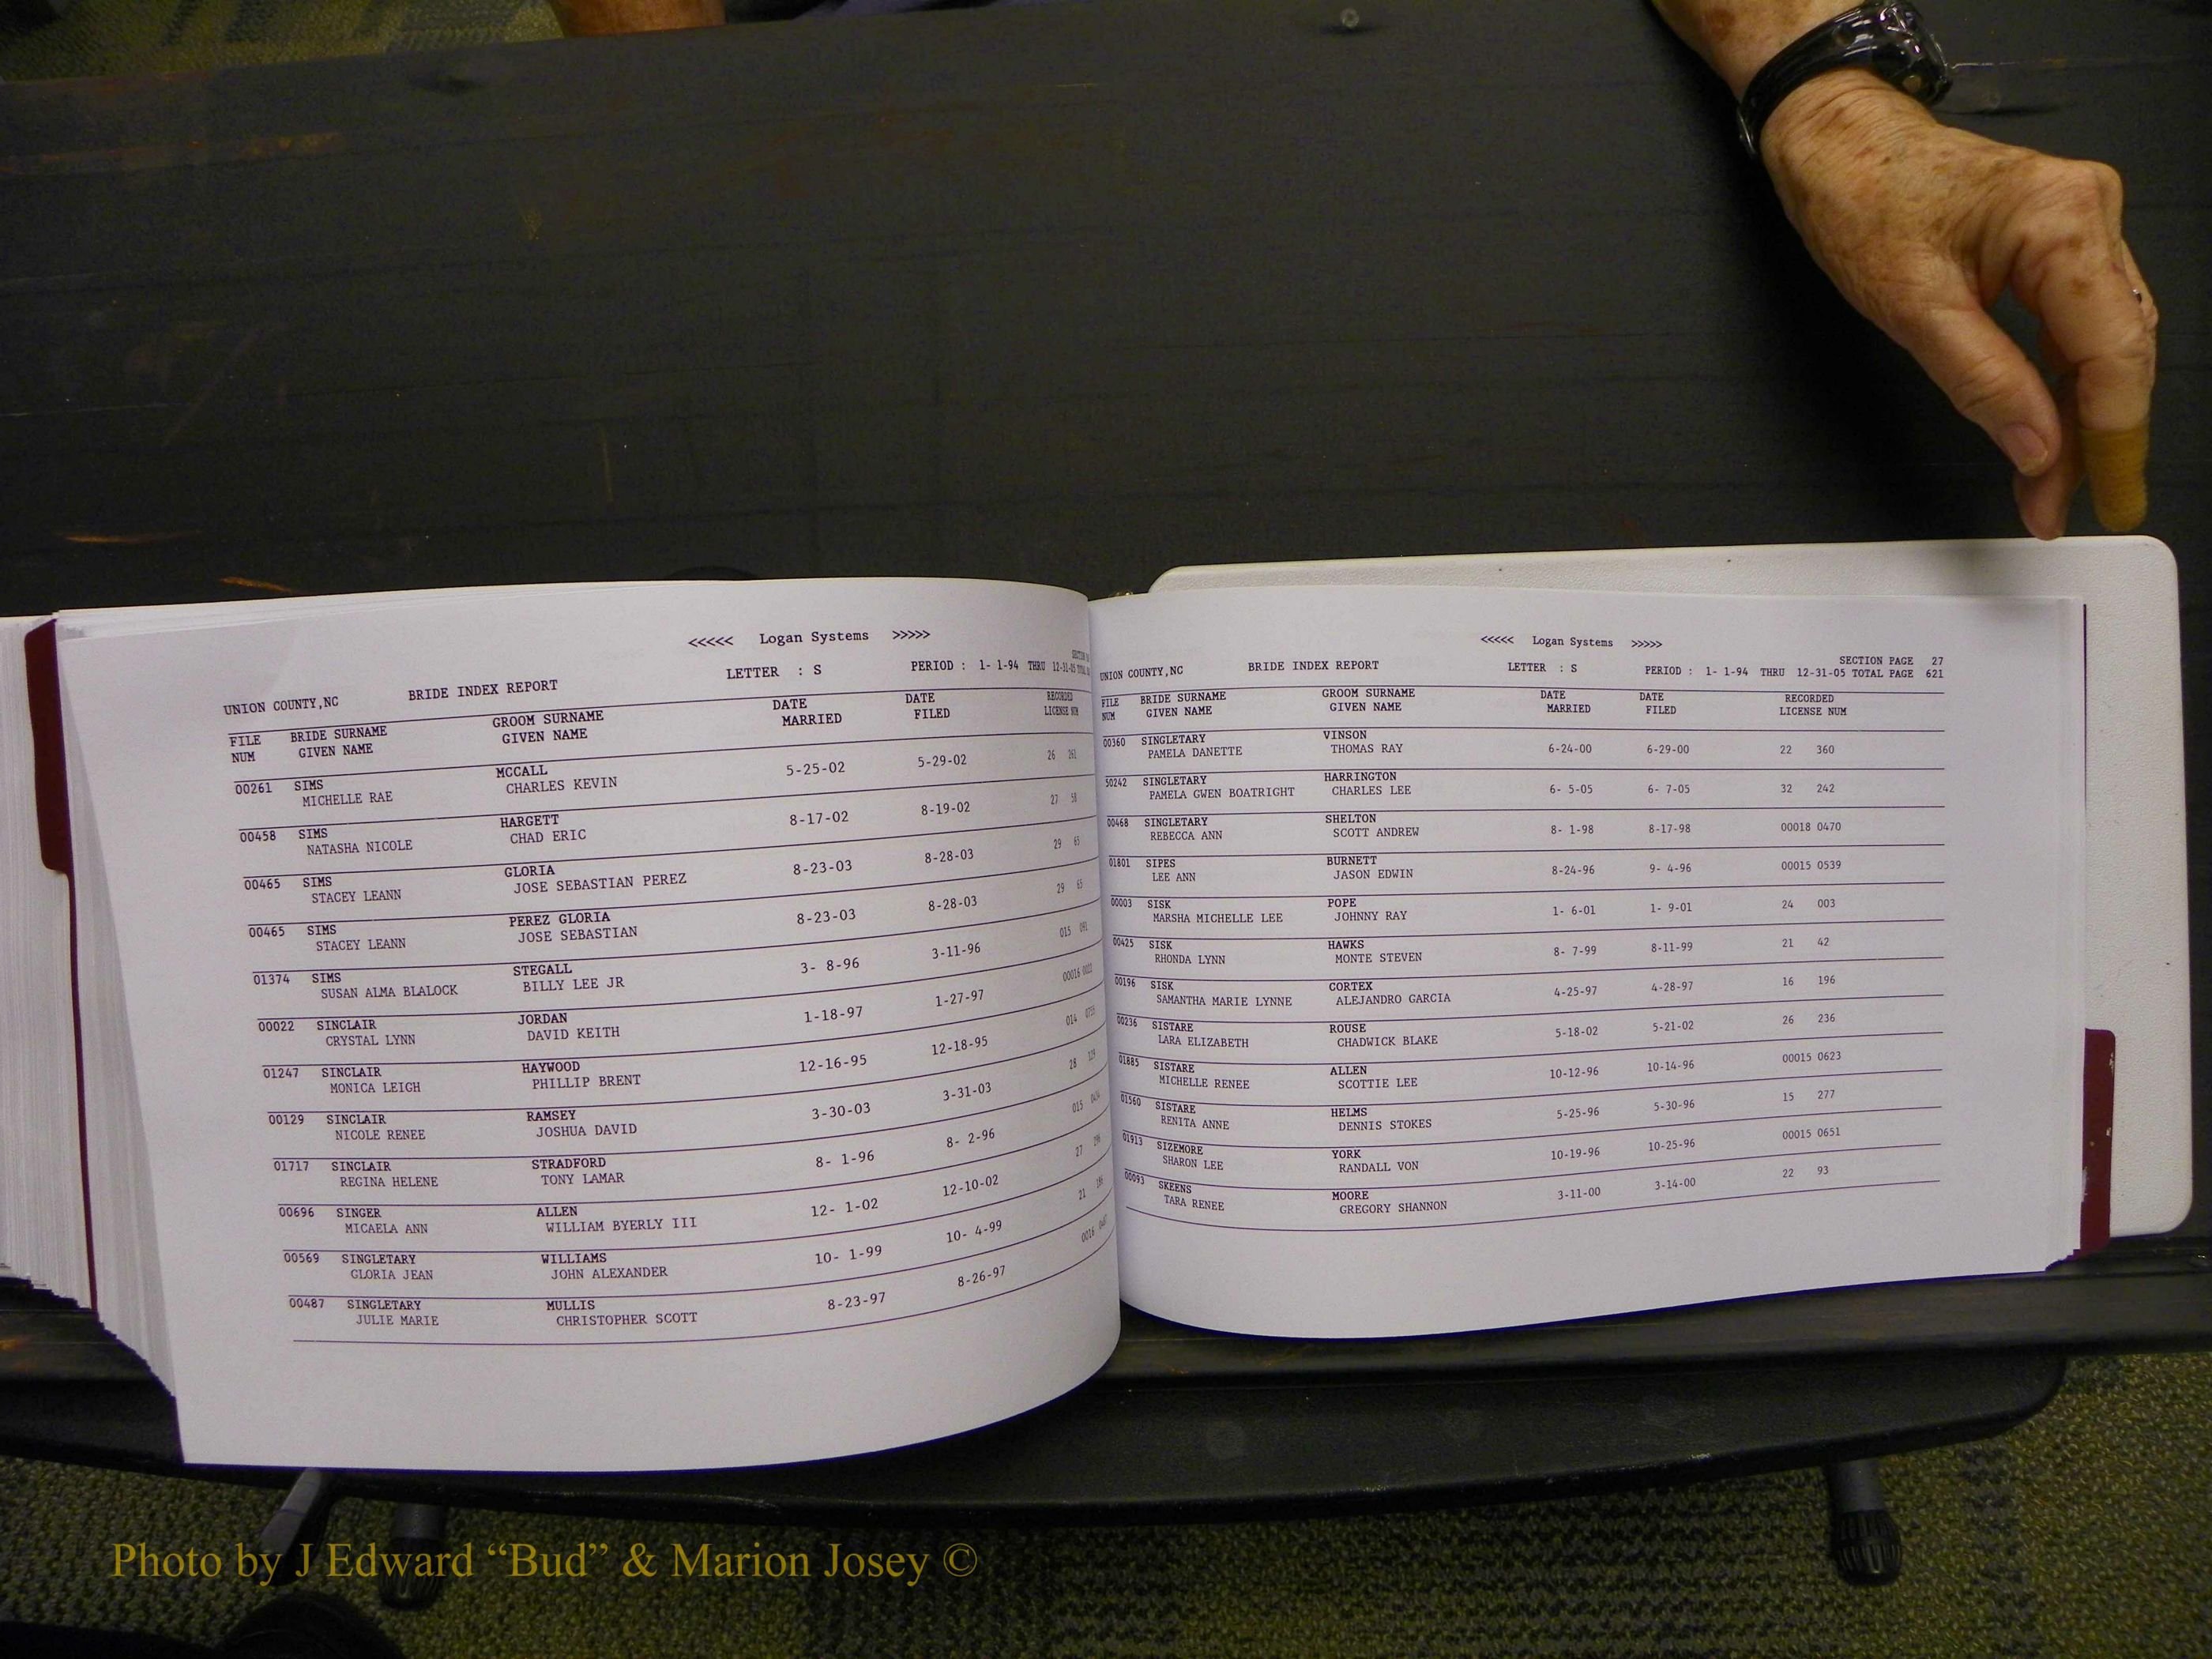 <<<<< Logan Systems >>>>>
UNION COUNTY,NC BRIDE INDEX REPORT LETTER : S PERIOD : 1- 1-94 THRU 12-31-05
FILE BRIDE SURNAME GROOM SURNAME DATE DATE RECORDED
NUM GIVEN NAME GIVEN NAME MARRIED FILED LICENSE NUM
00261 SIMS MCCALL 5-25-02 5-29-02 26 261
MICHELLE RAE CHARLES KEVIN
00458 SIMS HARGETT 8-17-02 8-19-02 27 58
NATASHA NICOLE CHAD ERIC
00465 SIMS GLORIA 8-23-03 8-28-03 29 65
STACEY LEANN JOSE SEBASTIAN PEREZ
00465 SIMS PEREZ GLORIA 8-23-03 8-28-03 29 65
STACEY LEANN JOSE SEBASTIAN
01374 SIMS STEGALL 3- 8-96 3-11-96 015
SUSAN ALMA BLALOCK BILLY LEE JR
00022 SINCLAIR JORDAN 1-18-97 1-27-97 00016 0022
CRYSTAL LYNN DAVID KEITH
01247 SINCLAIR HAYWOOD 12-16-95 12-18-95 014
MONICA LEIGH PHILLIP BRENT
00129 SINCLAIR RAMSEY 3-30-03 3-31-03 28 129
NICOLE RENEE JOSHUA DAVID
01717 SINCLAIR STRADFORD 8- 1-96 8- 2-96 015
REGINA HELENE TONY LAMAR
00696 SINGER ALLEN 12- 1-02 12-10-02 27
MICAELA ANN WILLIAM BYERLY III
00569 SINGLETARY WILLIAMS 10- 1-99 10- 4-99 21
GLORIA JEAN JOHN ALEXANDER
00487 SINGLETARY MULLIS 8-23-97 8-26-97 0016
JULIE MARIE CHRISTOPHER SCOTT
<<<<< Logan Systems >>>>>
SECTION PAGE 27
UNION COUNTY,NC BRIDE INDEX REPORT LETTER : S PERIOD : 1- 1-94 THRU 12-31-05 TOTAL PAGE 621
FILE BRIDE SURNAME GROOM SURNAME DATE DATE RECORDED
NUM GIVEN NAME GIVEN NAME MARRIED FILED LICENSE NUM
00360 SINGLETARY VINSON 6-24-00 6-29-00 22 360
PAMELA DANETTE THOMAS RAY
50242 SINGLETARY HARRINGTON 6- 5-05 6- 7-05 32 242
PAMELA GWEN BOATRIGHT CHARLES LEE
00468 SINGLETARY SHELTON 8- 1-98 8-17-98 00018 0470
REBECCA ANN SCOTT ANDREW
01801 SIPES BURNETT 8-24-96 9- 4-96 00015 0539
LEE ANN JASON EDWIN
00003 SISK POPE 1- 6-01 1- 9-01 24 003
MARSHA MICHELLE LEE JOHNNY RAY
00425 SISK HAWKS 8- 7-99 8-11-99 21 42
RHONDA LYNN MONTE STEVEN
00196 SISK CORTEX 4-25-97 4-28-97 16 196
SAMANTHA MARIE LYNNE ALEJANDRO GARCIA
00236 SISTARE ROUSE 5-18-02 5-21-02 26 236
LARA ELIZABETH CHADWICK BLAKE
01885 SISTARE ALLEN 10-12-96 10-14-96 00015 0623
MICHELLE RENEE SCOTTIE LEE
01560 SISTARE HELMS 5-25-96 5-30-96 15 277
RENITA ANNE DENNIS STOKES
01913 SIZEMORE YORK 10-19-96 10-25-96 00015 0651
SHARON LEE RANDALL VON
00093 SKEENS MOORE 3-11-00 3-14-00 22 93
TARA RENEE GREGORY SHANNON
Photo by J Edward “Bud” & Marion Josey ©